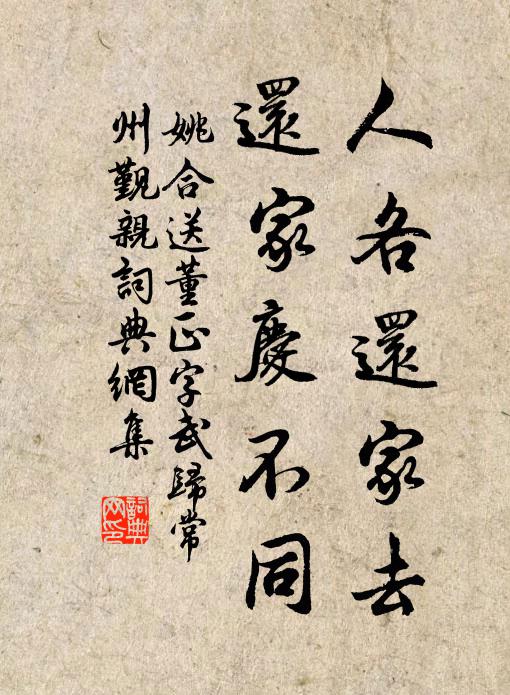 人各還家去
還家慶不同
姚合送董正字武歸常
州觐親詞典網集
詞典
网印